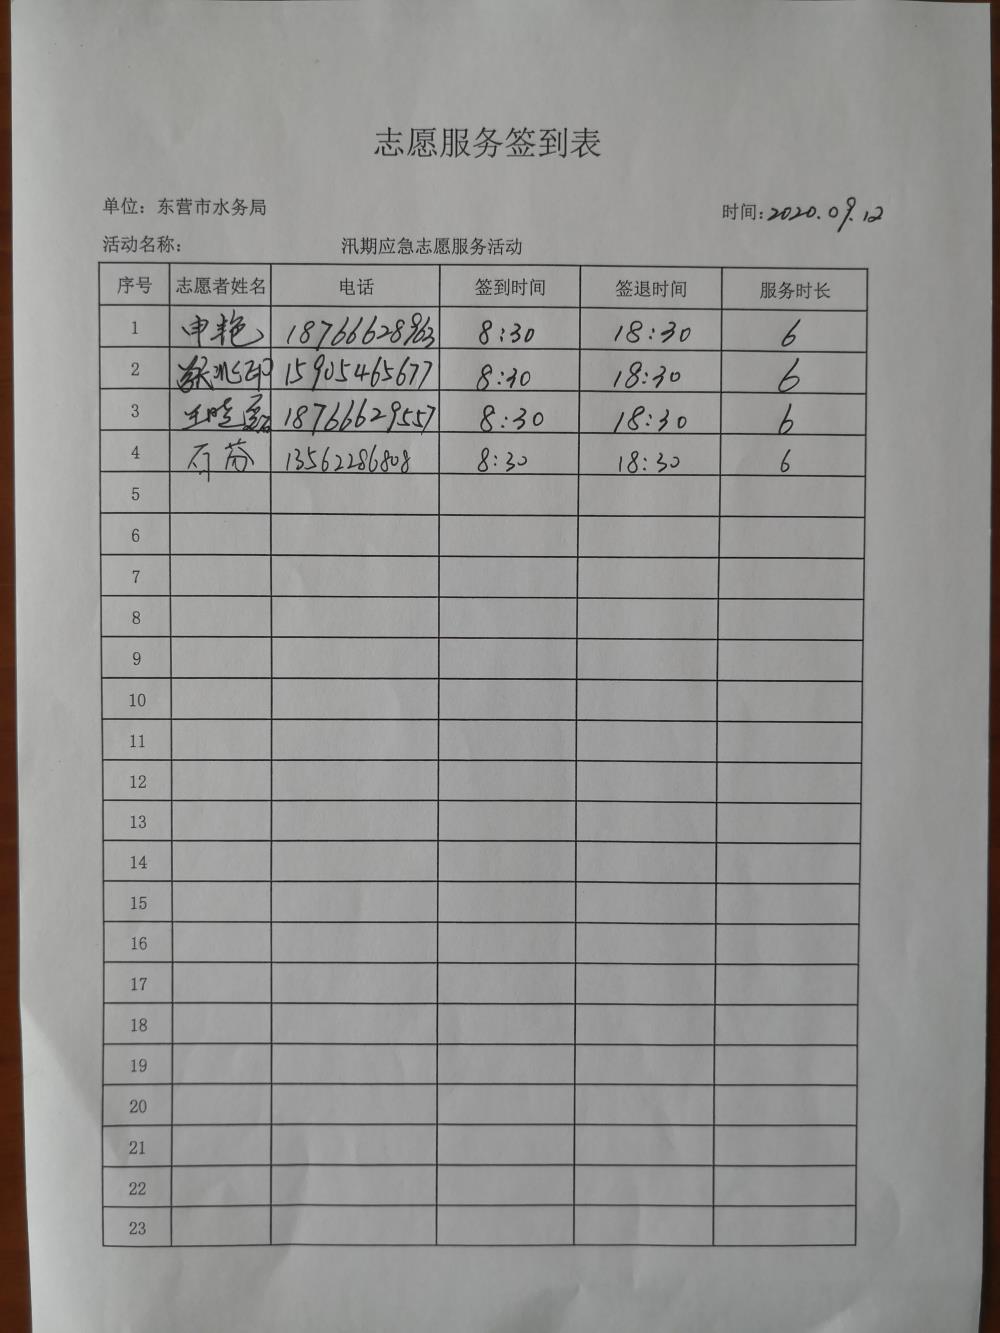 志愿服务签到表
单位：东营市水务局 时间：2020.09.12
活动名称： 汛期应急志愿服务活动
序号 志愿者姓名 电话 签到时间 签退时间 服务时长
1 申艳 18766628963 8:30 18:30 6
2 15905465677 8:30 18:30 6
3 王晓磊 18766629557 8:30 18:30 6
4 13562286808 8:30 18:30 6
5
6
7
8
9
10
11
12
13
14
15
16
17
18
19
20
21
22
23